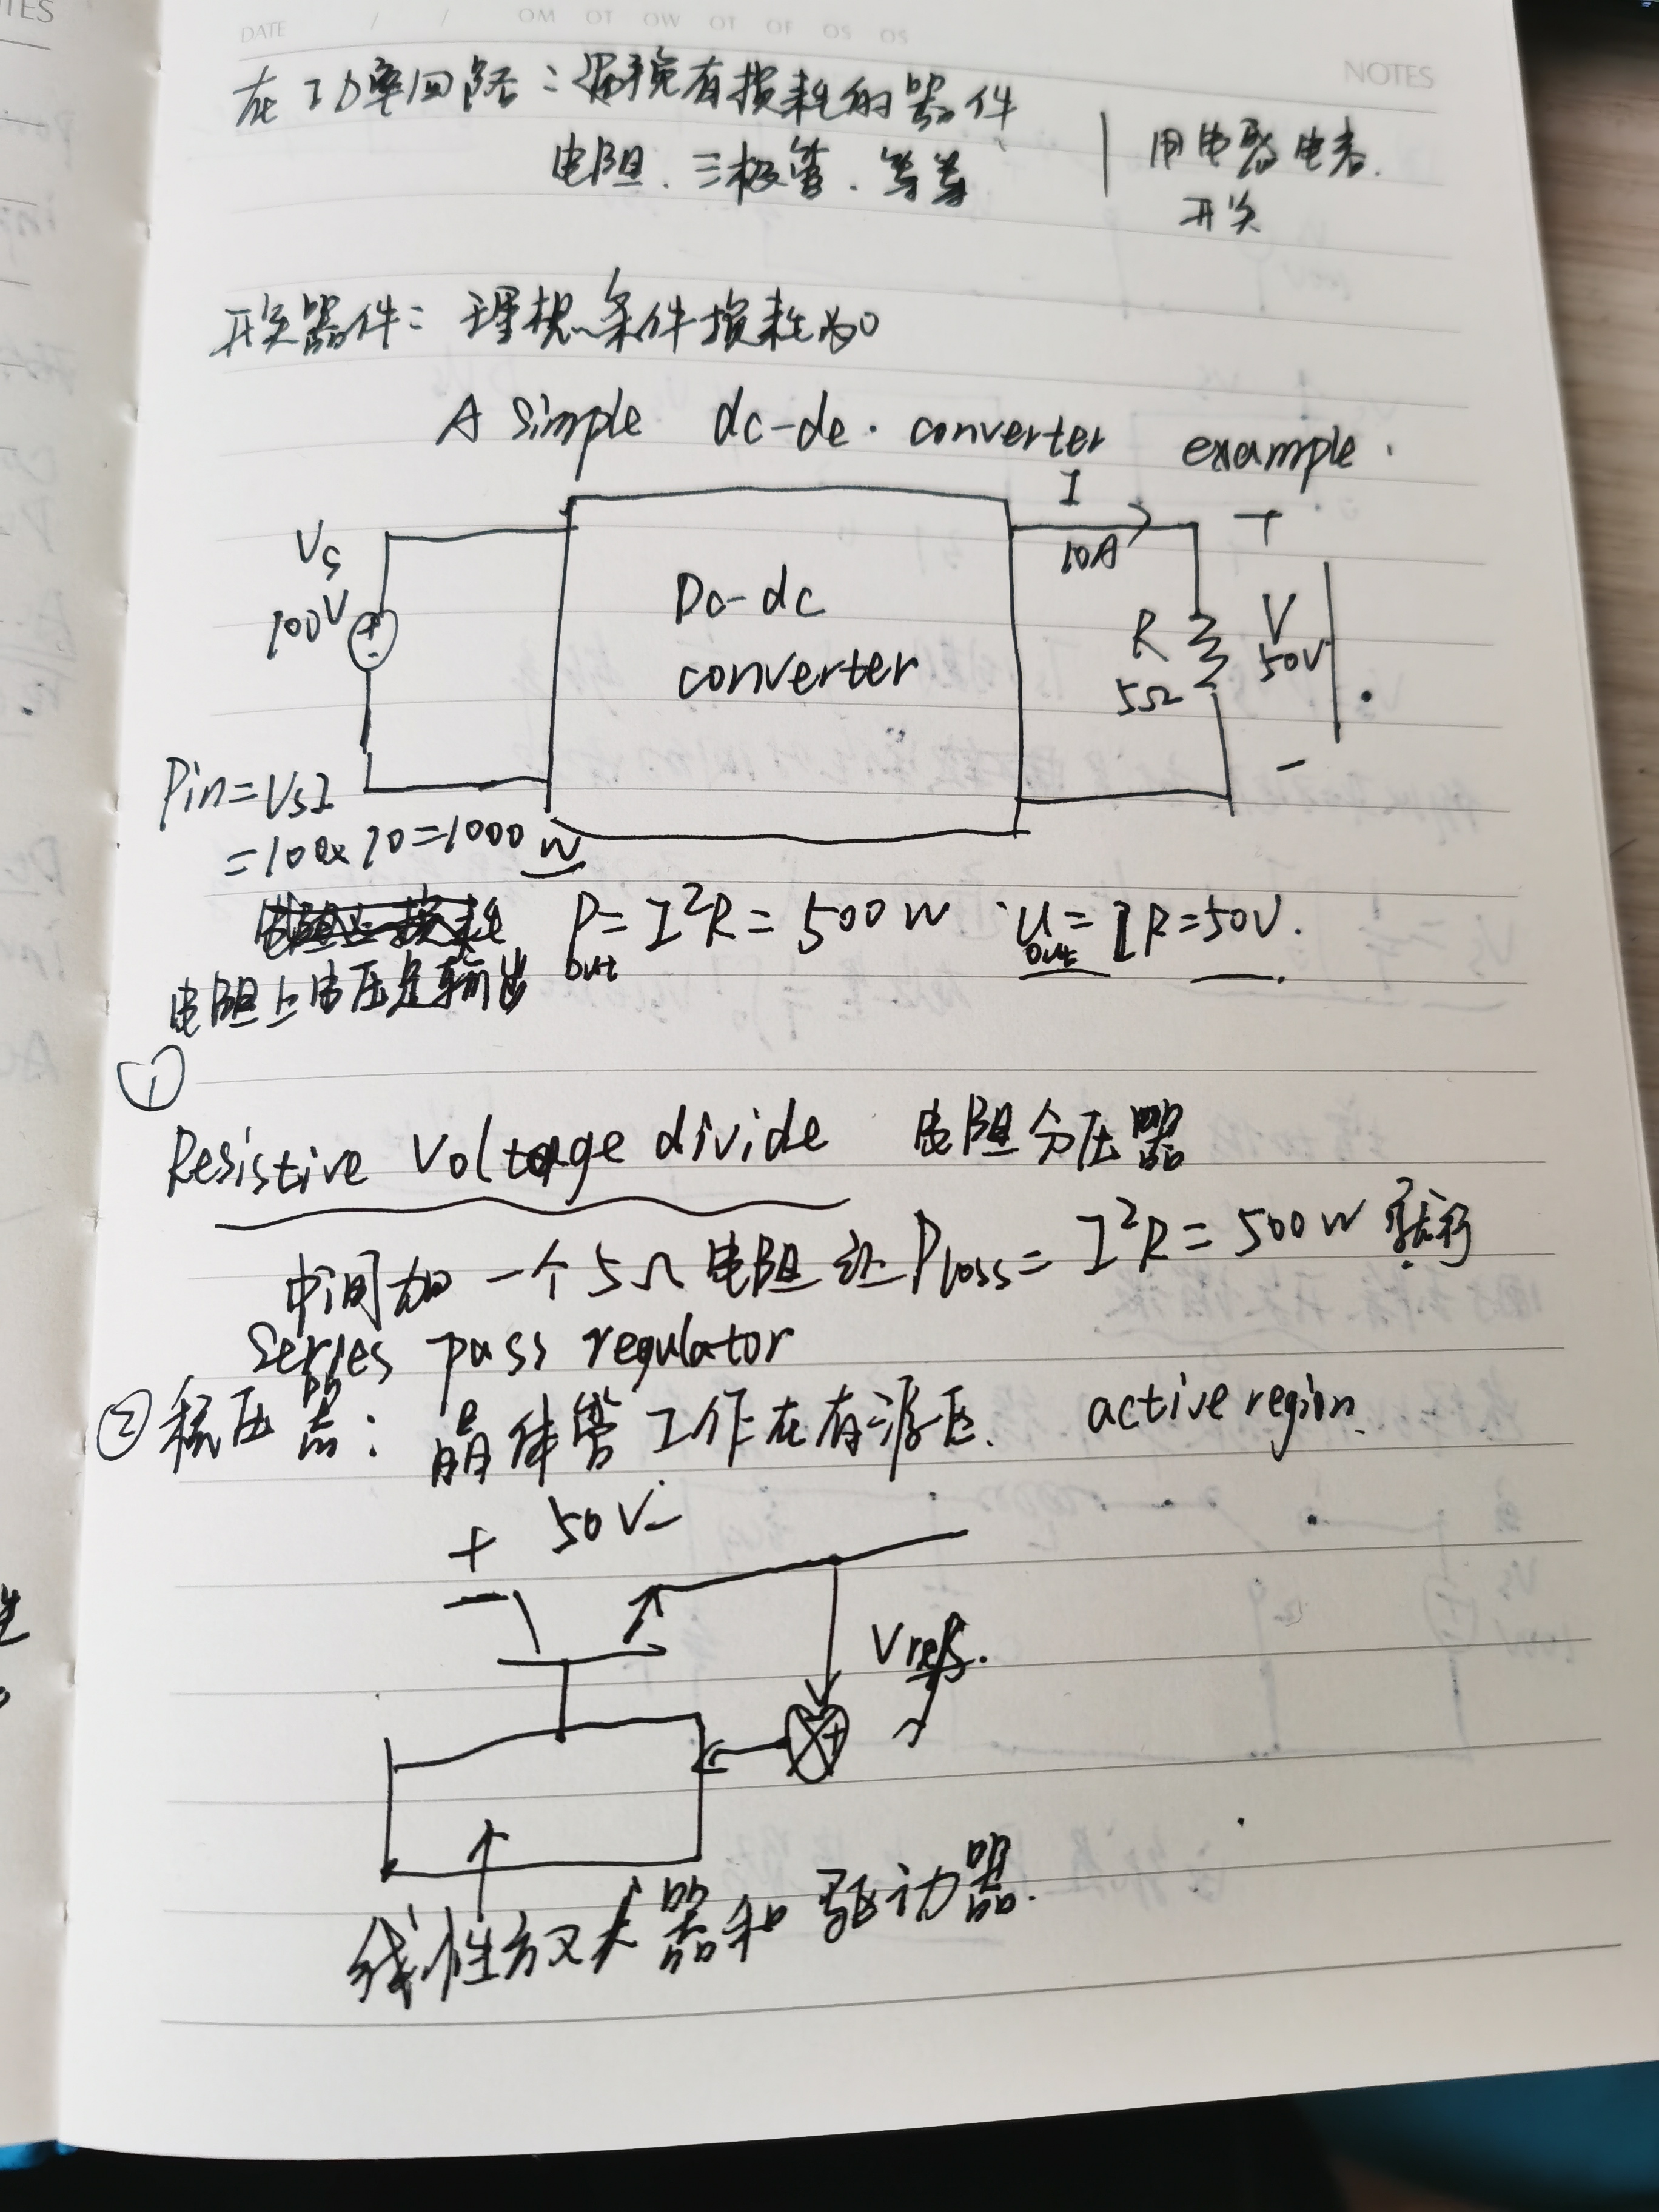 DATE / / OM OT OW OT OF OS OS
NOTES
在功率回路：避免有损耗的器件
电阻、三极管、等等
用电感电容.
开关
开关器件：理想条件损耗为0
A simple dc-dc. converter example.
I
10A
Vs
100V
+
-
Dc-dc
converter
R
5Ω
+
V
50V
-
Pin=VsI
=100×10=1000W
Pout=I²R=500W Uout=IR=50V.
电阻上电压是输出
①
Resistive Voltage divide 电阻分压器
中间加一个5Ω电阻 Ploss=I²R=500W
Series pass regulator
②稳压器：晶体管工作在有源区. active region.
+ 50V -
Vref.
+
线性放大器和驱动器.